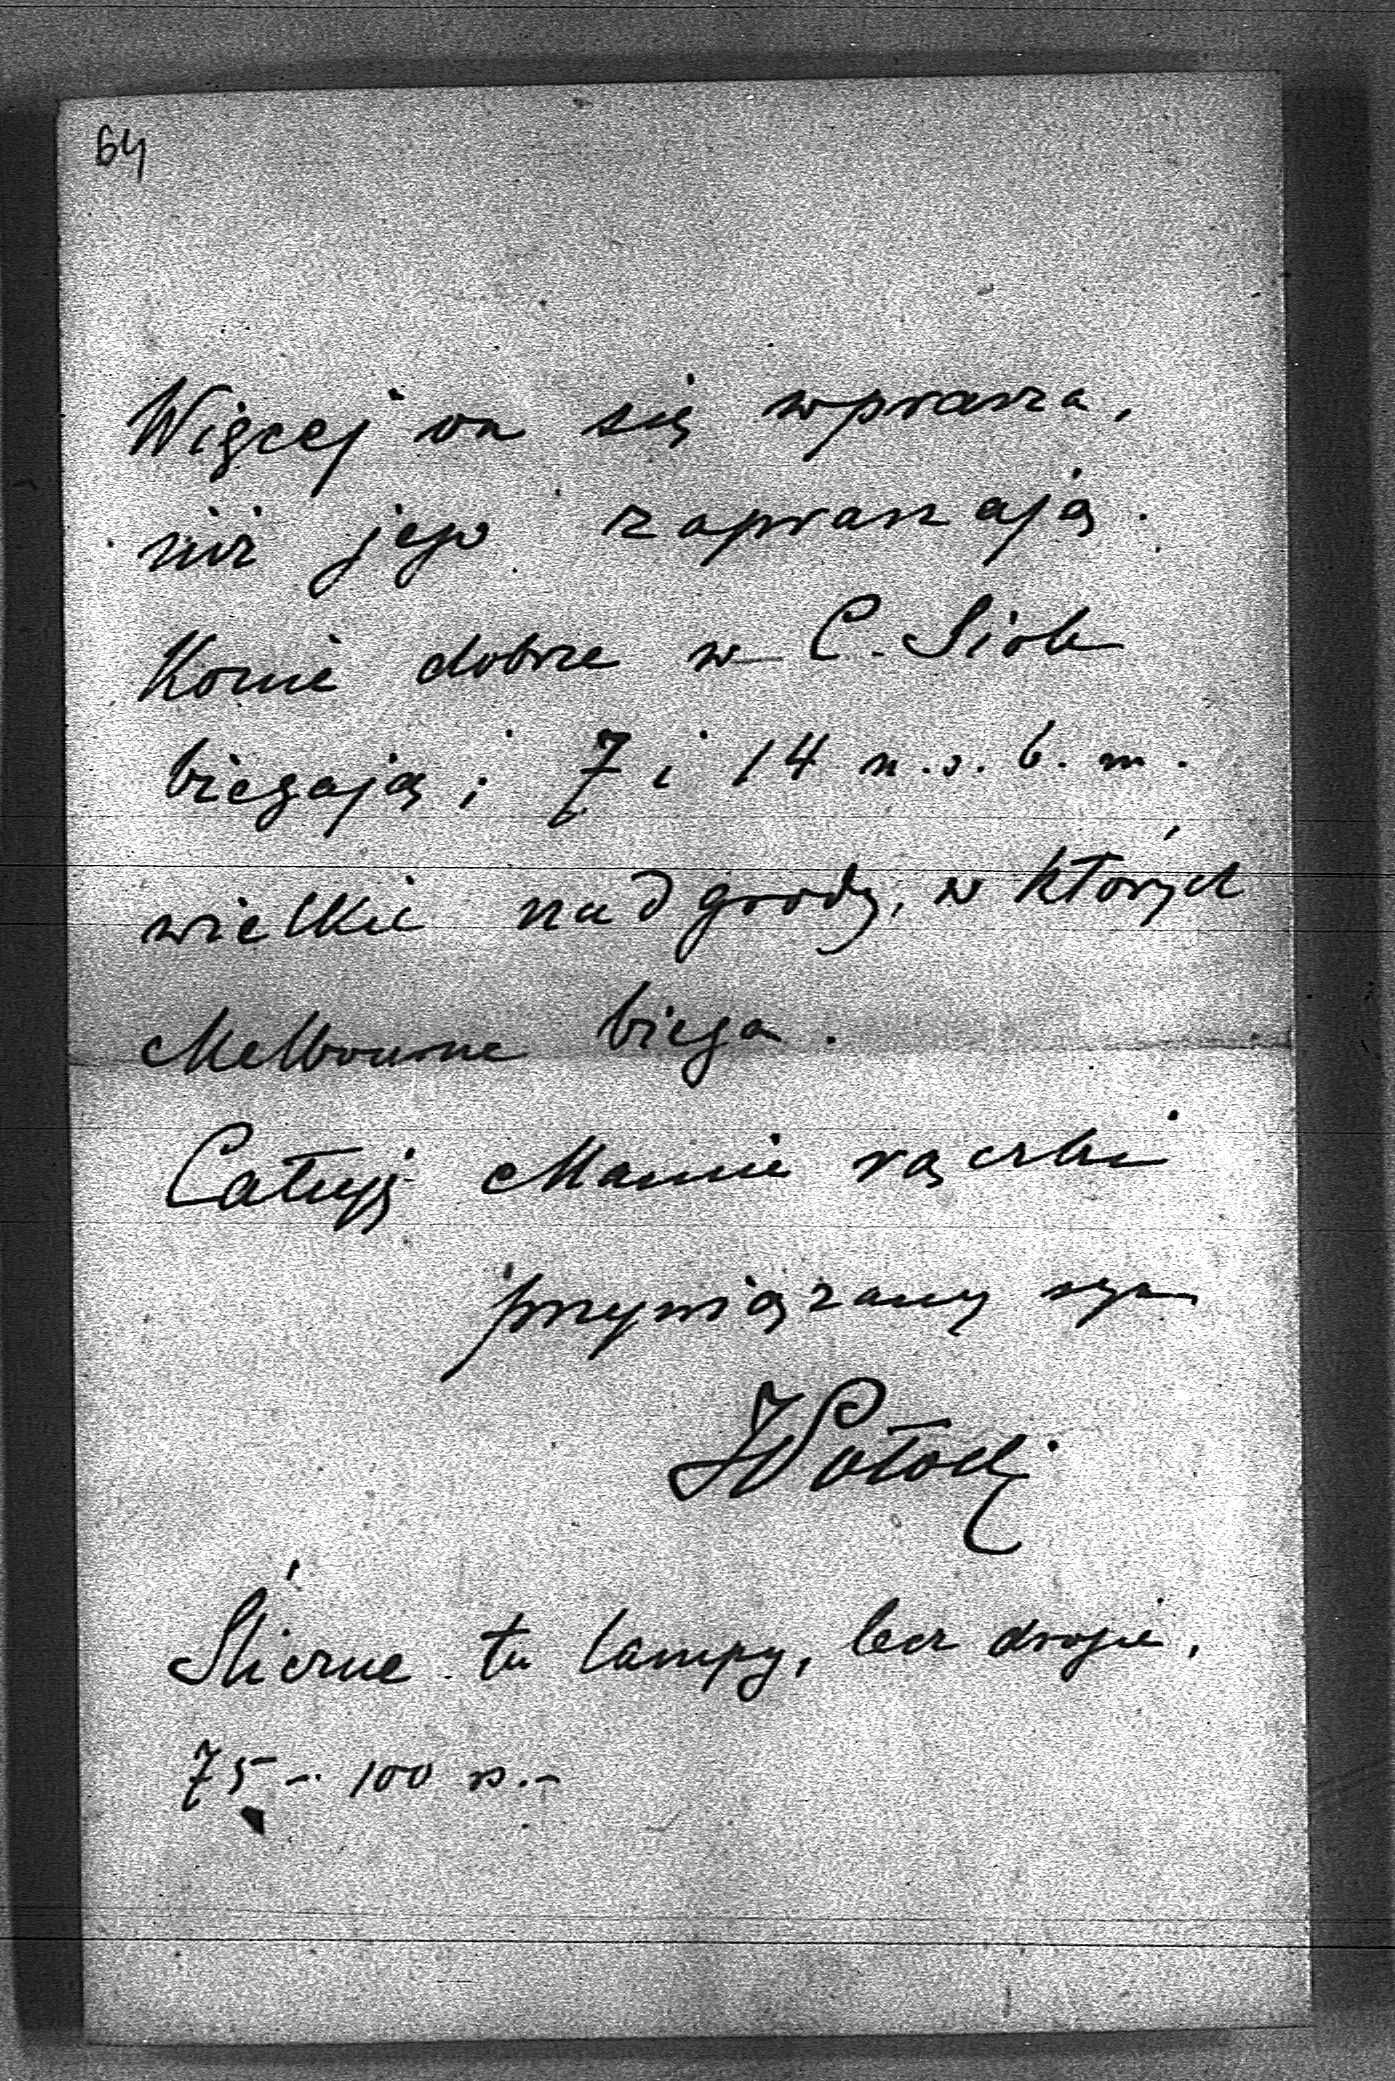 64
Więcej on się wprasza,
niż jego zapraszają.
Konie dobrze w C. Siole
biegają; 7 i 14 n. s. b. m.
wielkie nadgrody, w których
Melbourne biega.
Całuję Mamie rączki
przywiązany syn
JPotocki
Śliczne tu lampy, lecz drogie,
75 - 100 rs.-